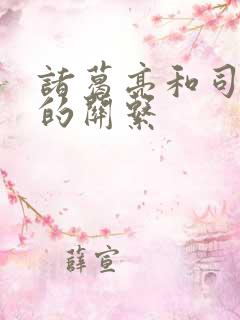 諸葛亮和司
的關系
薛宣